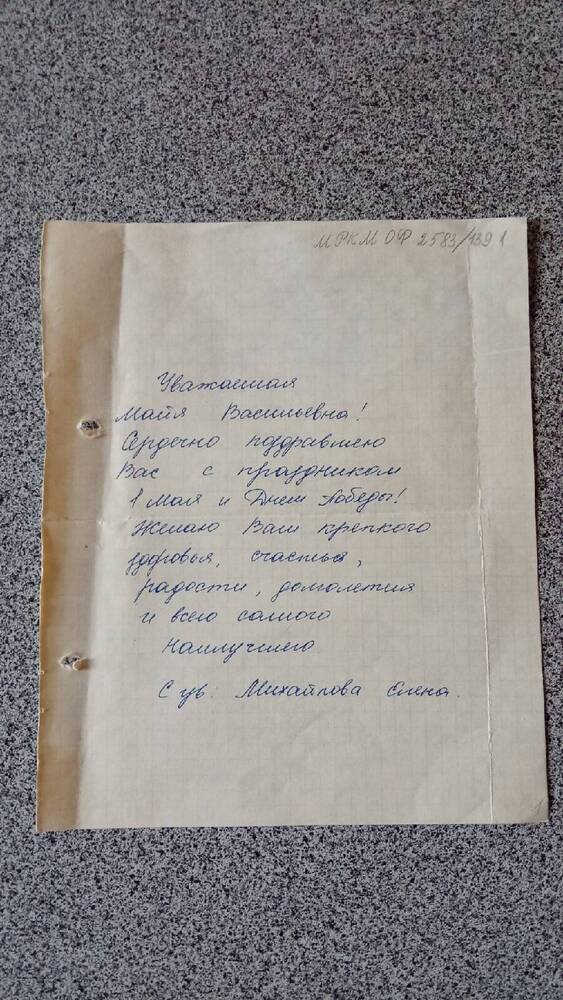 МРКМ ОФ 2583/139 1
Уважаемая
Майя Васильевна!
Сердечно поздравляю
Вас с праздником
1 Мая и Днем Победы!
Желаю Вам крепкого
здоровья, счастья,
радости, долголетия
и всего самого
наилучшего
С ув. Михайлова Елена.
1